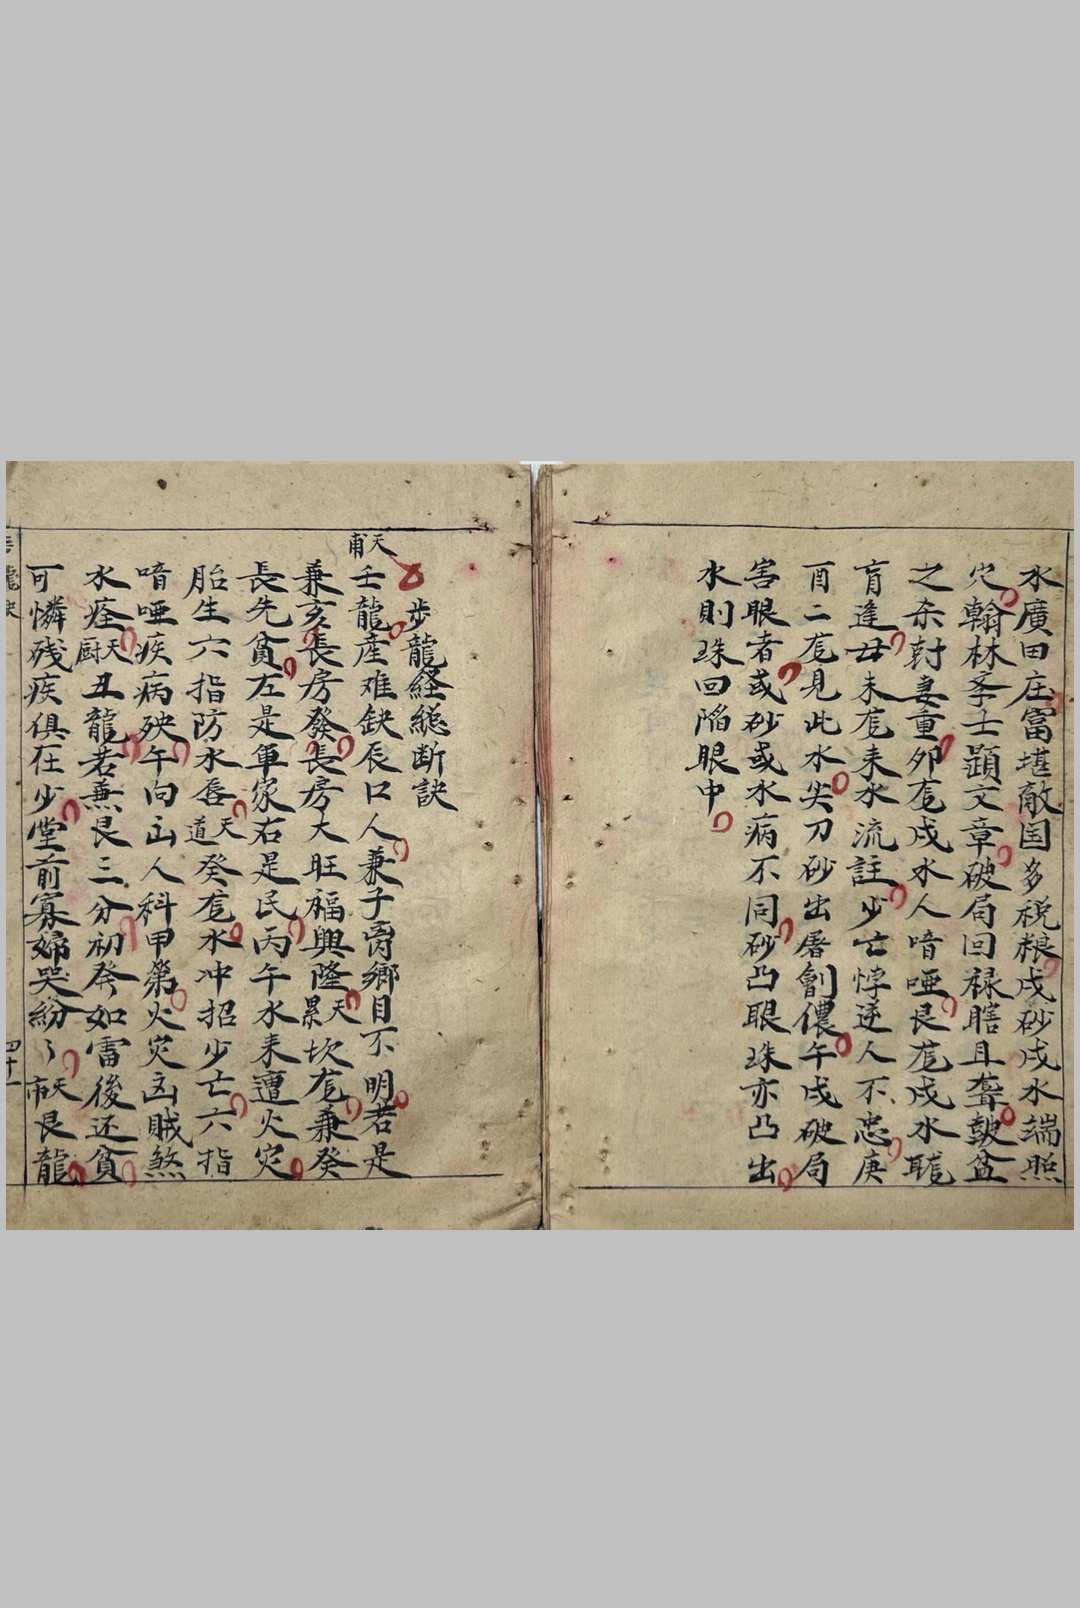 水廣田庄富堪敵国多税粮戌砂戌水端照
穴翰林李士顕文章破局回禄瞎且聾皷盆
之杀尅妻重夘龙戌水人喑哑艮龙戌水聴
肓逢丑未龙来水流註少亡悖逆人不忠庚
酉二龙見此水尖刀砂出屠創儂午戌破局
害眼者或砂或水病不同砂凸眼珠亦凸出
水則珠回陥眼中
步龍経縂断訣
天甫
壬龍産难缺辰口人兼子离鄉目不明若是
兼亥長房發長房大旺福興隆天累坎龙兼癸
長先貧左是軍家右是民丙午水来遭火灾
胎生六指防水唇天道癸龙水冲招少亡六指
喑哑疾病殃午向㐫人科甲第火灾㐫賊煞
水痊天厨丑龍若兼艮三分初癸如雷後还貧
可憐残疾俱在少堂前寡婦哭紛々天市艮龍
四十一